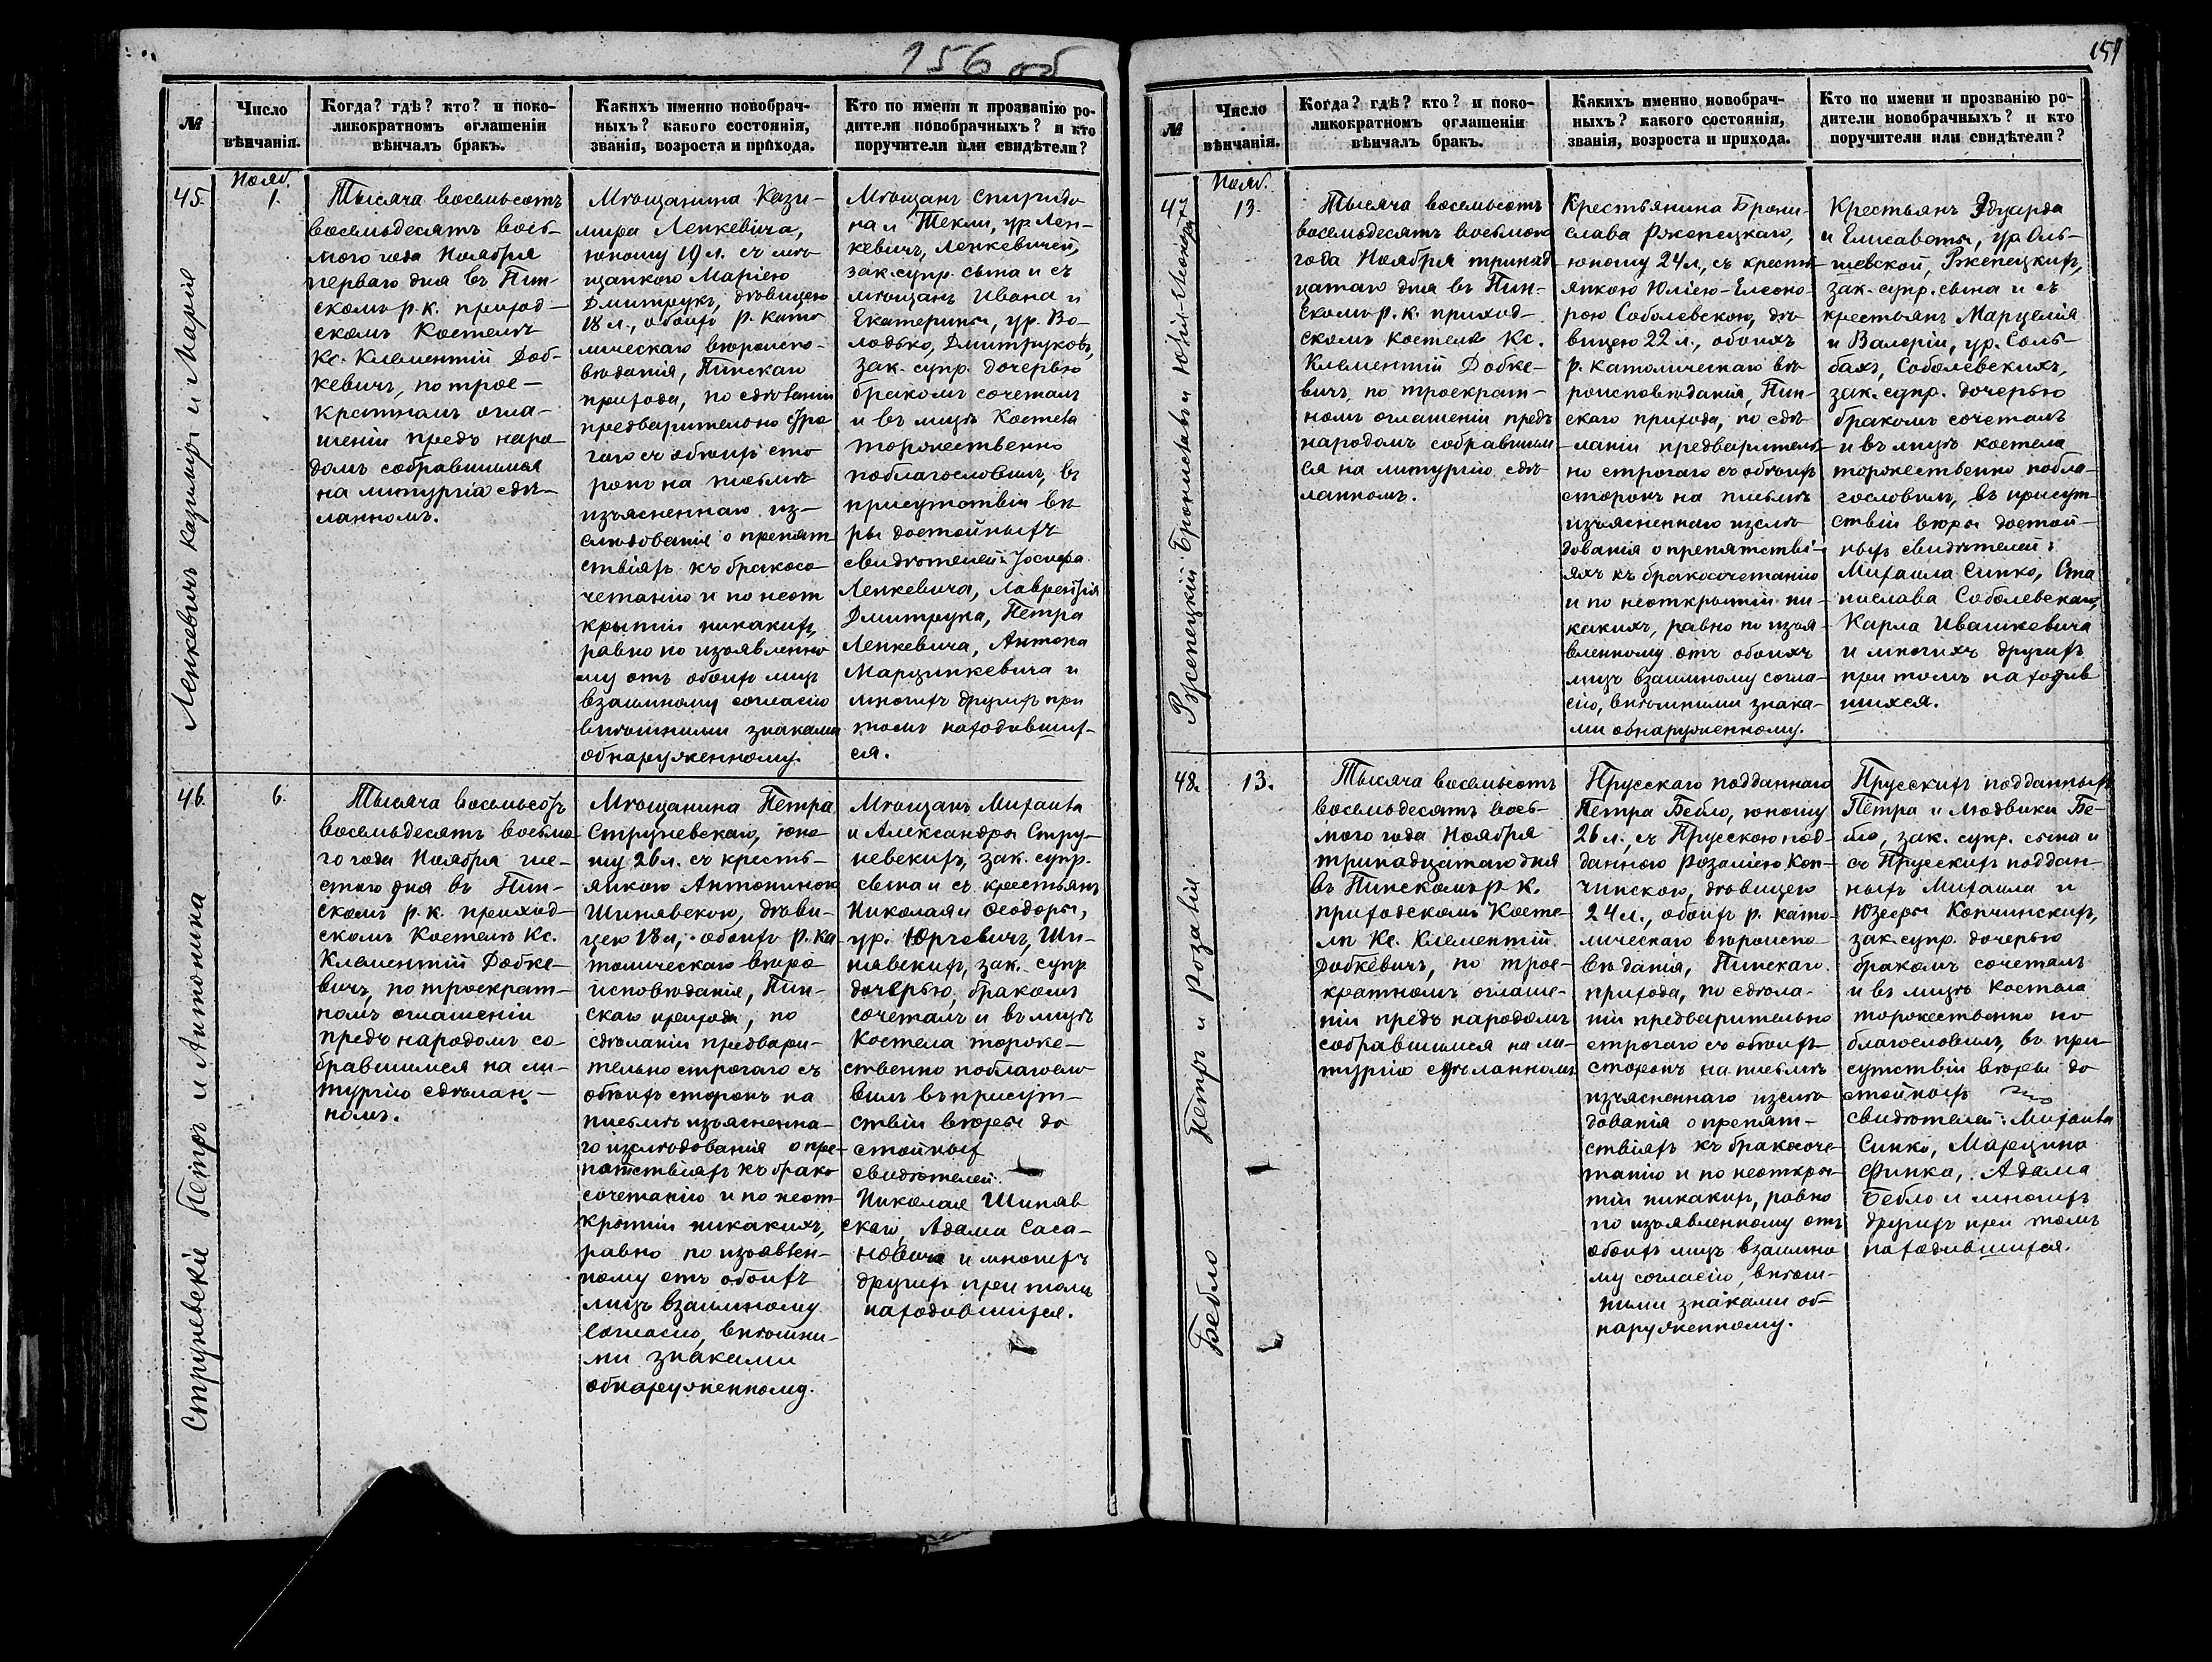 156 об
№
Число
вѣнчанія.
Когда? гдѣ? кто? и поко-
ликократномъ оглашеніи
вѣнчалъ бракъ.
Какихъ именно новобрач-
ныхъ? какого состоянія,
званія, возроста и прихода.
Кто по имени и прозванію ро-
дители новобрачныхъ? и кто
поручители или свидѣтели?
45.
Нояб.
1.
Ленкевичъ Казимиръ и Марія
Тысяча восемьсотъ
восемьдесятъ вось-
мого года Ноября
перваго дня въ Пин-
скомъ р. к. приход-
скомъ Костелѣ
Кс. Клементій Доб-
кевичъ, по трое-
кратномъ огла-
шеніи предъ наро
домъ собравшимся
на литургію сдѣ-
ланномъ.
Мѣщанина Кази-
мира Ленкевича,
юношу 19 л. съ мѣ
щанкою Маріею
Дмитрукъ, дѣвицею
18 л., обоихъ р. като
лическаго вѣроиспо-
вѣданія, Пинскаго
прихода, по сдѣланіи
предварительно стро
гаго съ обѣихъ сто
ронъ на письмѣ
изъясненнаго из-
слѣдованія о препят
ствіяхъ къ бракосо
четанію и по неот
крытіи никакихъ,
равно по изъявленно
му отъ обоихъ лицъ
взаимному согласію
внѣшними знаками
обнаруженному.
Мѣщанъ Спиридо
на и Текли, ур. Лен-
кевичъ, Ленкевичей,
зак. супр. сына и съ
мѣщанъ Ивана и
Екатерины, ур. Во-
лодько, Дмитруковъ,
зак. супр. дочерью
бракомъ сочеталъ
и въ лицѣ Костела
торжественно
поблагословилъ, въ
присутствіи вѣ
ры достойныхъ
свидѣтелей: Іосифа
Ленкевича, Лаврентія
Дмитрука, Петра
Ленкевича, Антона
Марцинкевича и
многихъ другихъ при
томъ находивших-
ся.
46.
6.
Струневскіе Петръ и Антонина
Тысяча восемьсотъ
восемьдесятъ восьмо
го года Ноября ше-
стого дня въ Пин-
скомъ р. к. приход-
скомъ Костелѣ Кс.
Клементій Добке-
вичъ, по троекрат-
номъ оглашеніи
предъ народомъ со-
бравшимся на ли-
тургію сдѣлан-
номъ.
Мѣщанина Петра
Струневскаго, юно
шу 26 л. съ кресть-
янкою Антониною
Шинявскою, дѣви-
цею 18 л., обоихъ р. ка-
толическаго вѣро
исповѣданія, Пин-
скаго прихода, по
сдѣланіи предвари-
тельно строгаго съ
обѣихъ сторонъ на
письмѣ изъясненна-
го изслѣдованія о пре-
пятствіяхъ къ брако
сочетанію и по неот-
крытіи никакихъ,
равно по изъявлен-
ному отъ обоихъ
лицъ взаимному
согласію, внѣшни-
ми знаками
обнаруженному.
Мѣщанъ Михаила
и Александры Стру-
невскихъ, зак. супр.
сына и съ крестьянъ
Николая и Ѳеодоры,
ур. Юргевичъ, Ши-
нявскихъ, зак. супр.
дочерью, бракомъ
сочеталъ и въ лицѣ
Костела торже-
ственно поблагосло
вилъ въ присут-
ствіи вѣры до
стойныхъ
свидѣтелей:
Николая Шиняв
скаго, Адама Саса-
новича и многихъ
другихъ при томъ
находившихся.
157
№
Число
вѣнчанія.
Когда? гдѣ? кто? и поко-
ликократномъ оглашеніи
вѣнчалъ бракъ.
Какихъ именно новобрач-
ныхъ? какого состоянія,
званія, возроста и прихода.
Кто по имени и прозванію ро-
дители новобрачныхъ? и кто
поручители или свидѣтели?
47
Нояб.
13.
Ржепецкій Брониславъ и Юлія-Елеонора
Тысяча восемьсотъ
восемьдесятъ восьмого
года Ноября тринад
цатаго дня въ Пин-
скомъ р. к. приход-
скомъ Костелѣ Кс.
Клементій Добке-
вичъ, по троекрат-
номъ оглашеніи предъ
народомъ собравшим
ся на литургію сдѣ
ланномъ.
Крестьянина Брони-
слава Ржепецкаго,
юношу 24 л., съ кресть
янкою Юліею-Елеоно-
рою Соболевскою, дѣ
вицею 22 л., обоихъ
р. католическаго вѣ
роисповѣданія, Пин-
скаго прихода, по сдѣ
ланіи предваритель-
но строгаго съ обѣихъ
сторонъ на письмѣ
изъясненнаго изслѣ
дованія о препятстві-
яхъ къ бракосочетанію
и по неоткрытіи ни-
какихъ, равно по изъя-
вленному отъ обоихъ
лицъ взаимному согла-
сію, внѣшними знака-
ми обнаруженному.
Крестьянъ Эдуарда
и Елисаветы, ур. Оль-
шевской, Ржепецкихъ,
зак. супр. сына и съ
крестьянъ Марцелія
и Валеріи, ур. Соль-
бахъ, Соболевскихъ,
зак. супр. дочерью
бракомъ сочеталъ
и въ лицѣ костела
торжественно побла-
гословилъ, въ присут-
ствіи вѣры достой-
ныхъ свидѣтелей:
Михаила Синко, Ста
нислава Соболевскаго,
Карла Ивашкевича
и многихъ другихъ
при томъ находив
шихся.
48.
13.
Бебло Петръ и Розалія
Тысяча восемьсотъ
восемьдесятъ вось-
мого года Ноября
тринадцатаго дня
въ Пинскомъ р. к.
приходскомъ Косте-
лѣ Кс. Клементій
Добкевичъ, по трое-
кратномъ оглаше-
ніи предъ народомъ
собравшимся на ли-
тургію сдѣланномъ
Прусскаго подданнаго
Петра Бебло, юношу
26 л., съ Прусскою под-
данною Розаліею Коп-
чинскою, дѣвицею
24 л., обоихъ р. като-
лическаго вѣроиспо-
вѣданія, Пинскаго
прихода, по сдѣла-
ніи предварительно
строгаго съ обѣихъ
сторонъ на письмѣ
изъясненнаго изслѣ
дованія о препят-
ствіяхъ къ бракосоче-
танію и по неоткры-
тіи никакихъ, равно
по изъявленному отъ
обоихъ лицъ взаимно
му согласію, внѣш-
ними знаками об-
наруженному.
Прусскихъ подданныхъ
Петра и Людвики Бе-
бло, зак. супр. сына и
съ Прусскихъ поддан-
ныхъ Михаила и
Юзефы Копчинскихъ,
зак. супр. дочерью
бракомъ сочеталъ
и въ лицѣ Костела
торжественно по
благословилъ, въ при-
сутствіи вѣры до
стойныхъ
свидѣтелей: Михаила
Синко, Марцина
Финка, Адама
Бебло и многихъ
другихъ при томъ
находившихся.